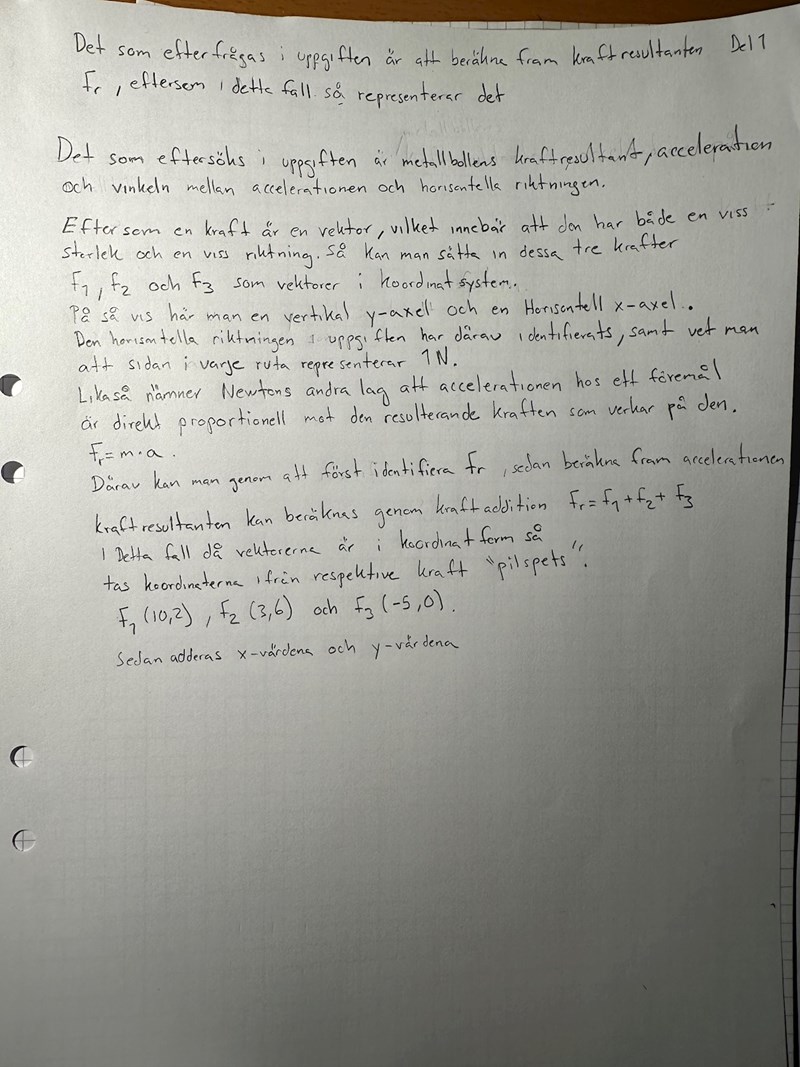 Det som efterfrågas i uppgiften är att beräkna fram kraftresultanten Del 1
Fr, eftersem i detta fall så representerar det
Det som eftersöks i uppgiften är metallbollens kraftresultant, acceleration
och vinkeln mellan accelerationen och horisontella riktningen.
Eftersom en kraft är en vektor, vilket innebär att den har både en viss
storlek och en viss riktning. Så kan man sätta in dessa tre krafter
F1, F2 och F3 som vektorer i koordinatsystem.
På så vis här man en vertikal y-axel och en Horisontell x-axel.
Den horisontella riktningen i uppgiften har därav identifierats, samt vet man
att sidan i varje ruta representerar 1N.
Likaså nämner Newtons andra lag att accelerationen hos ett föremål
är direkt proportionell mot den resulterande kraften som verkar på den.
Fr = m · a.
Därav kan man genom att först identifiera Fr, sedan beräkna fram accelerationen
kraftresultanten kan beräknas genom kraftaddition Fr = F1 + F2 + F3
I Detta fall då vektorerna är i koordinatform så
tas koordinaterna ifrån respektive kraft "pilspets".
F1 (10,2), F2 (3,6) och F3 (-5,0).
Sedan adderas x-värdena och y-värdena